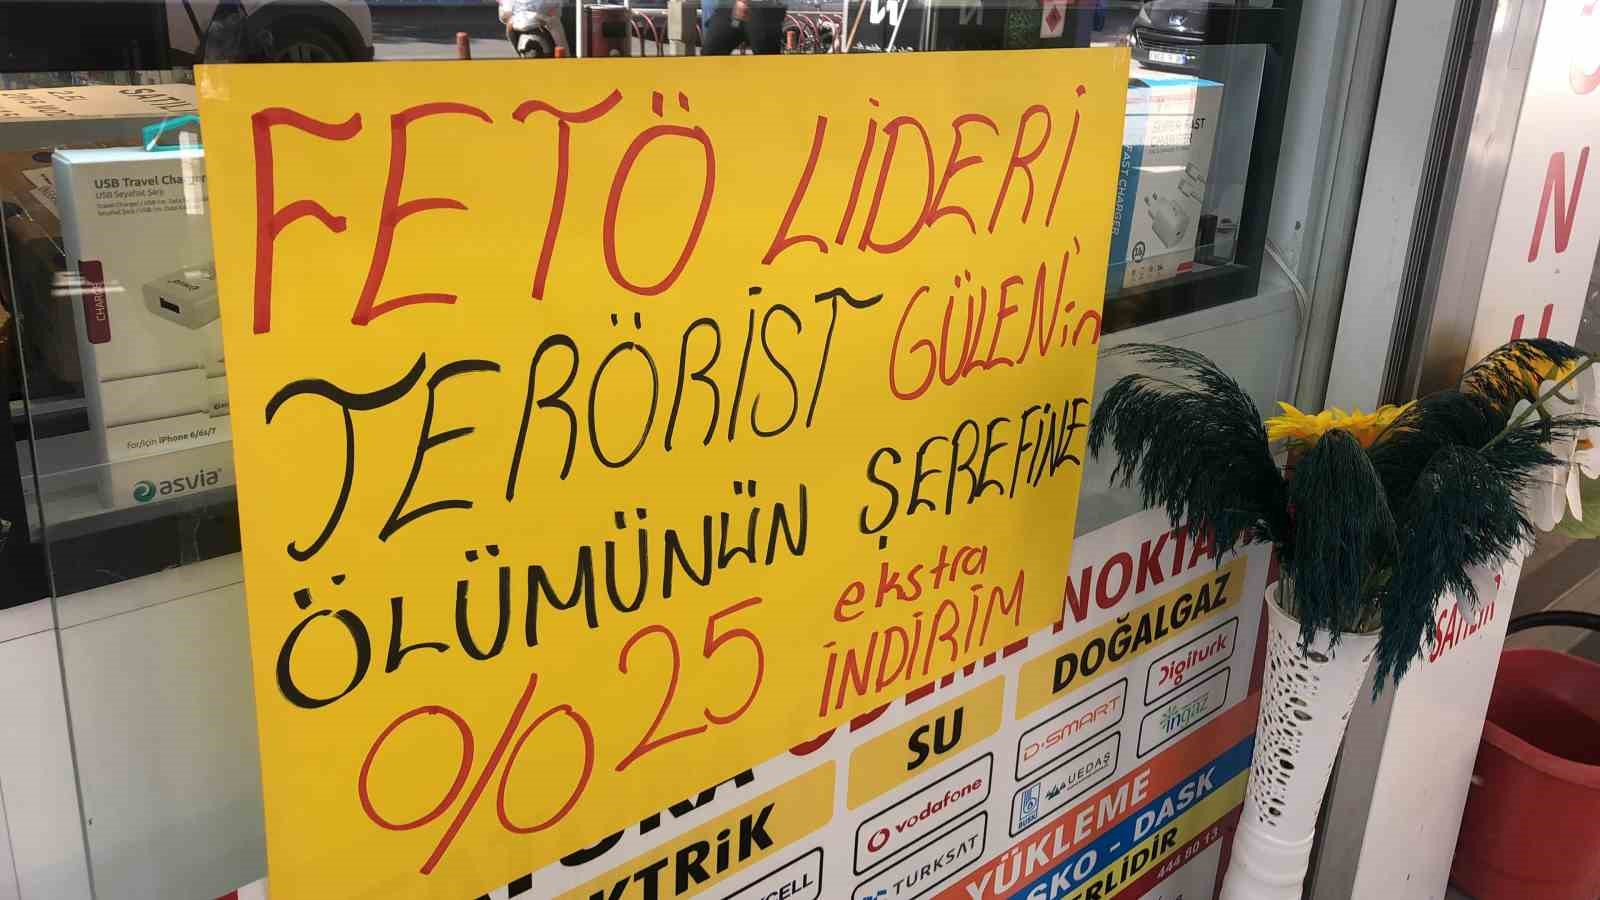 FETÖ LİDERİ
TERÖRİST GÜLENin
ÖLÜMÜNÜN ŞEREFİNE
%25 ekstra
İNDİRİM
USB Travel Charger
USB Seyahat Şarjı
CHARGE
for/için iPhone 6/6s/7
asvia
SUPER FAST
CHARGER
FAST CHARGER
NOKTA
DOĞALGAZ
SU
Digiturk
D-SMART
ingaz
UEDAŞ
BUSKİ
vodafone
TURKSAT
YÜKLEME
DASK
444 80 13
N